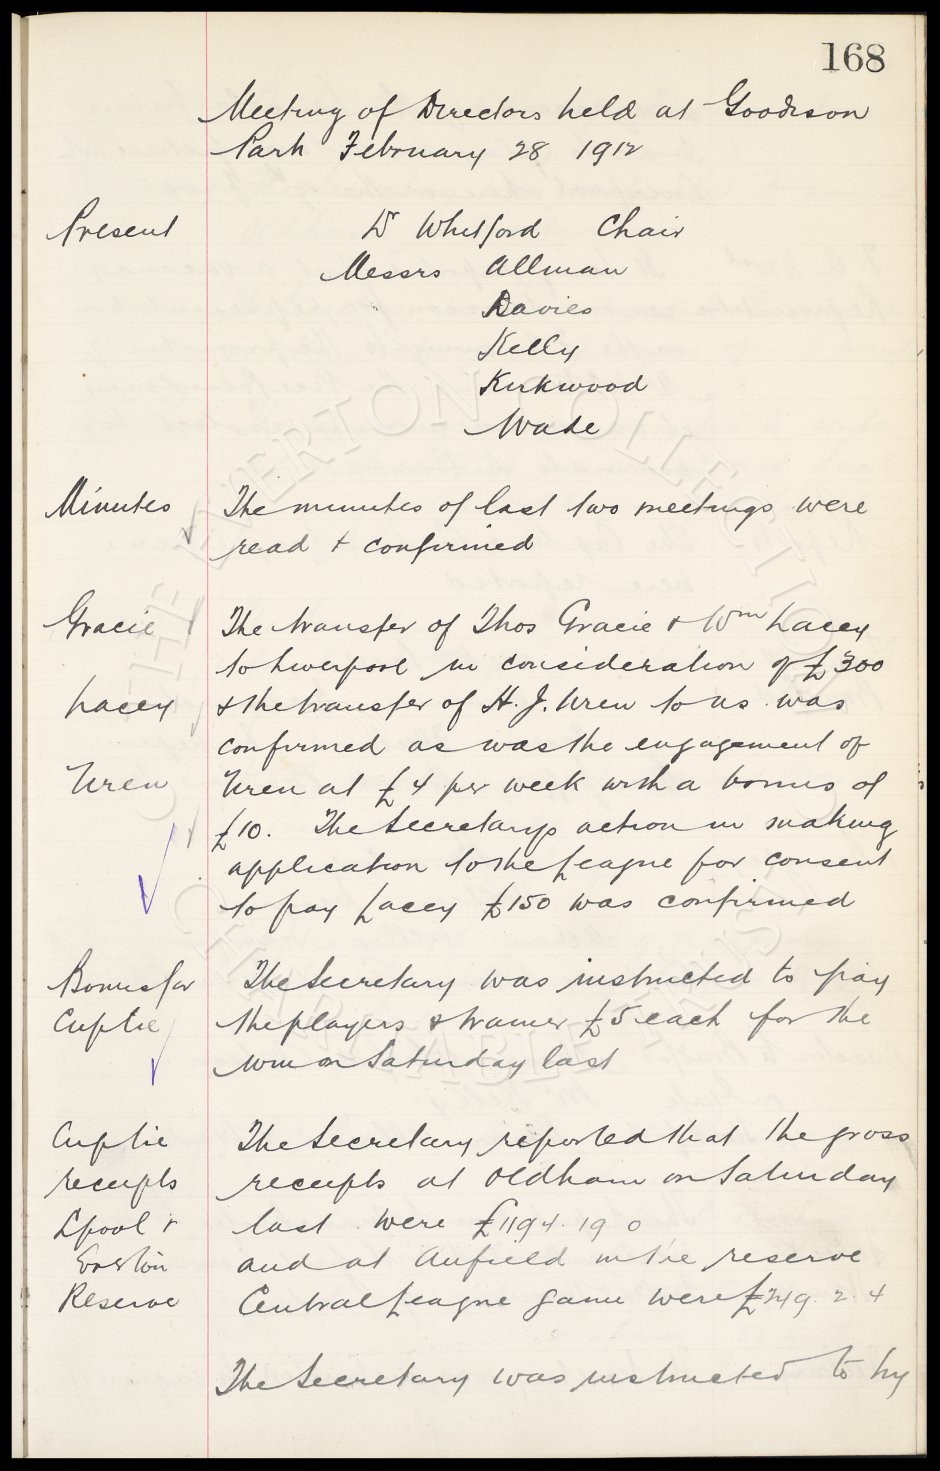 168
Meeting of Directors held at Goodison
Park February 28 1912
Present
Dr Whitford Chair
Messrs Allman
Davies
Kelly
Kirkwood
Wade
Minutes
The minutes of last two meetings were
read & confirmed
Gracie
The transfer of Thos Gracie & Wm Lacey
to Liverpool in consideration of £300
Lacey
& the transfer of H. J. Uren to us was
confirmed as was the engagement of
Uren
Uren at £4 per week with a bonus of
£10. The Secretarys action in making
application to the League for consent
to pay Lacey £150 was confirmed
Bonus for
The Secretary was instructed to pay
Cuptie
the players & trainer £5 each for the
win on Saturday last
Cup tie
The Secretary reported that the gross
receipts
receipts at Oldham on Saturday
Lpool &
last were £1194. 19 0
Everton
and at Anfield in the reserve
Reserve
Central League game were £249. 2. 4
The Secretary was instructed to try
THE EVERTON COLLECTION
CHARITABLE TRUST